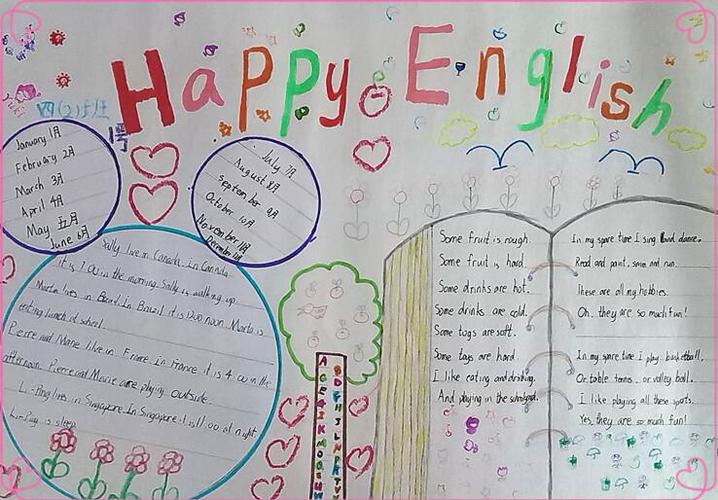 Happy English
四(2)班
January 1月
February 2月
March 3月
April 4月
May 五月
June 6月
July 7月
August 8月
September 9月
October 10月
November 11月
December 12月
Sally live in Canada. In Cannda
it is 7:00 in the morning. Sally is walking up.
Marta lives in Brazil. In Brazil it is 12:00 noon. Marta is
eating lunch at school.
Pierre and Marie live in France. In France it is 4:00 in the
afternoon. Pierre and Marie are playing outside.
Li-Ping lives in Singapore. In Singapore it is 11:00 at night.
Li-Ping is sleep.
Some fruit is rough.
Some fruit is hard.
Some drinks are hot.
Some drinks are cold.
Some toys are soft.
Some toys are hard.
I like eating and drinking.
And playing in the schoolyard.
In my spare time I sing and dance.
Read and paint, swim and run.
These are all my hobbies.
Oh, they are so much fun!
In my spare time I play basketball,
Or table tennis, or valley ball.
I like playing all these sports.
Yes, they are so much fun!